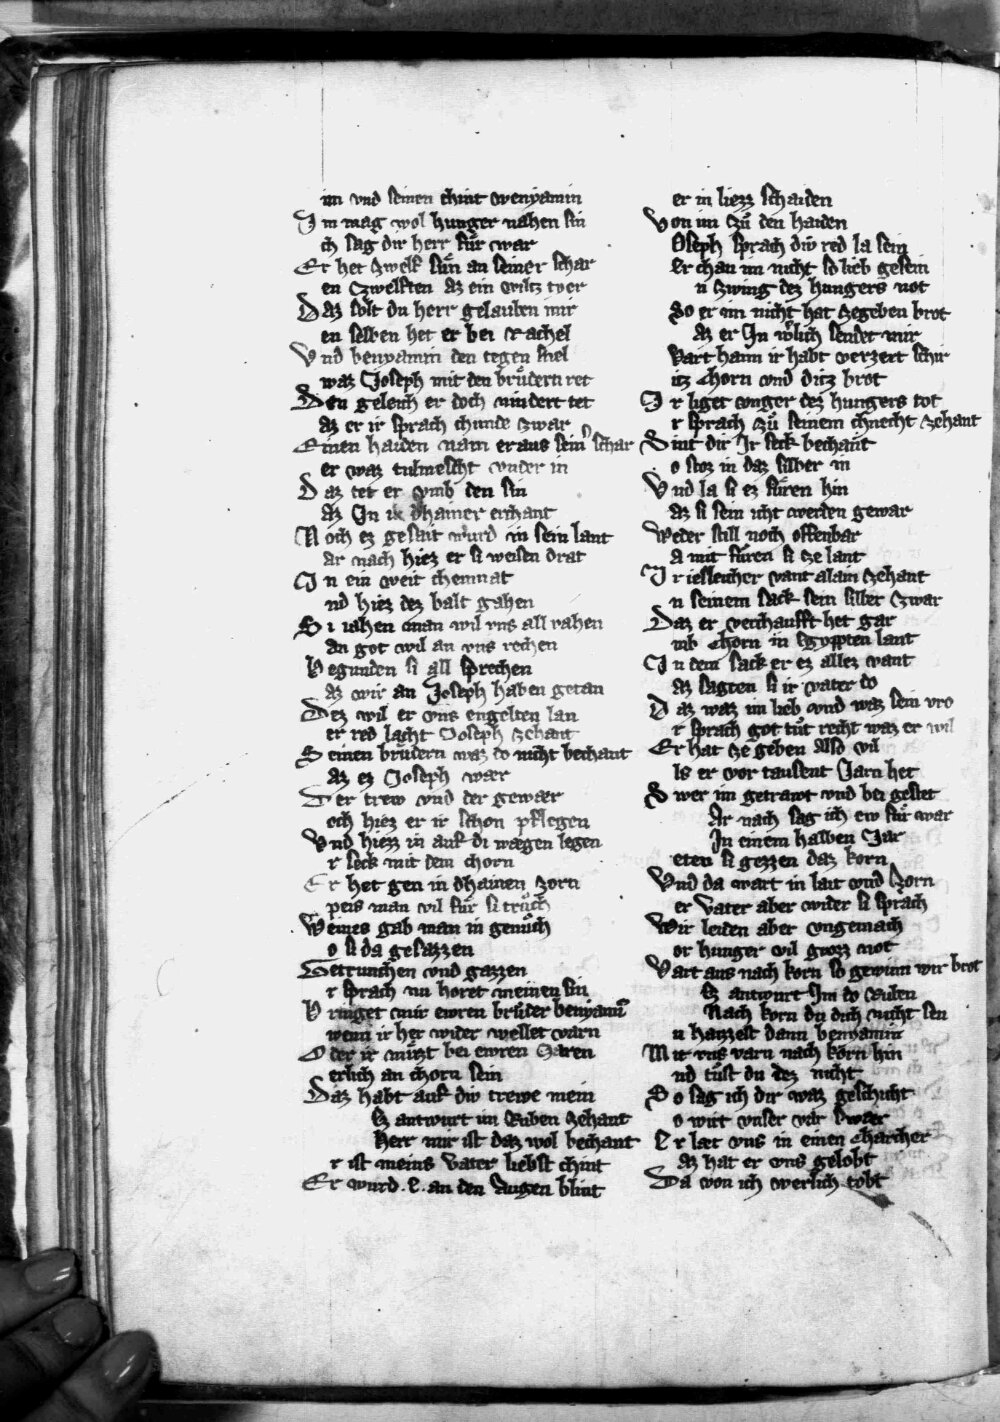 im vnd seinen chint wenyamin
Im mag wol hunger nahen sin
ch sag dir herr fuͤr war
Er het zwelf suͤn an seiner schar
en czwelften az ein wiltz tyer
Daz solt du herr gelauben mir
en selben het er bei Rachel
Vnd benyamin den tegen snel
waz Joseph mit den bruͤdern ret
Den geleich er doch nindert tet
az er ir sprach chunde zwar
Einen haiden nam er aus seinr schar
er waz tulmescht vnder in
Daz tet er vmb den sin
az In ir dhainer erchant
Noch ez gesait wurd in sein lant
ar nach hiez er si weisen drat
In ein weit chemnat
nd hiez dez balt gahen
Si iahen man wil vns all vahen
an got wil an vns rechen
Begunden si all sprechen
az wir an Joseph haben getan
Dez wil er vns engelten lan
er red lacht Joseph zehant
Seinen bruͤdern waz do nicht bechant
az ez Joseph wær
Der trew vnd der gewær
och hiez er ir schon pflegen
Vnd hiezz in auf di wægen legen
r seck mit dem chorn
Er het gen in dhainen zorn
peis man vil fuͤr si truͦch
Weines gab man in genuͦch
o si da gesazzen
Getrunchen vnd gazzen
r sprach nu horet meinen sin
Bringet mir ewren bruͦder benyamin
wenn ir her wider wellet varn
Oder ir muͤzt bei ewren Jaren
erlich an chorn sein
Daz habt auf div trewe mein
Ez antwurt im Ruben zehant
Herr mir ist daz wol bechant
r ist meins vater liebst chint
Er wurd .e. an den augen blint
er in liezz schaiden
Von im zuͦ den haiden
Joseph sprach div red la sein
Er chan im nicht so lieb gesein
n zwing dez hungers not
So er im nicht hat zegeben brot
az er In wͤrlich sendet mir
Vart hann ir habt verzert schir
itz chorn vnd ditz brot
Ir liget vnger dez hungers tot
r sprach zuͦ seinem chnecht zehant
Bint dir Jr seck bechant
o stoz in daz silber in
Vnd la si ez fuͤren hin
az si sein icht werden gewar
Weder still noch offenbar
a mit fuͤren si ze lant
Ir iesleicher vant alain zehant
n seinem sack sein silber zwar
Daz er verchaufft het gar
mb chorn in Egypten lant
In dem sack er ez allez vant
az sagten si ir vater do
Daz waz im lieb vnd waz sein vro
r sprach got tuͦt recht waz er wil
Er hat ze geben also vil
ls er vor tausent Jarn het
Swer im getrawt vnd bei gestet
Ar nach sag ich ew fuͤr war
In einem halben Jar
eten si gezzen daz korn
Vnd da wart in lait vnd zorn
er vater aber wider si sprach
Wir leiden aber vngemach
or hunger vil grozz not
Vart aus nach korn so gewinn wir brot
Ez antwurt Im do Ruben
Nach korn du dich nicht sen
n hazzest dann benyamin
Mit vns varn nach korn hin
nd tuͦst du dez nicht
So sag ich dir waz geschicht
o wirt vnser var swær
Er læt vns in einen charcher
az hat er vns gelobt
Da von ich werlich tobt